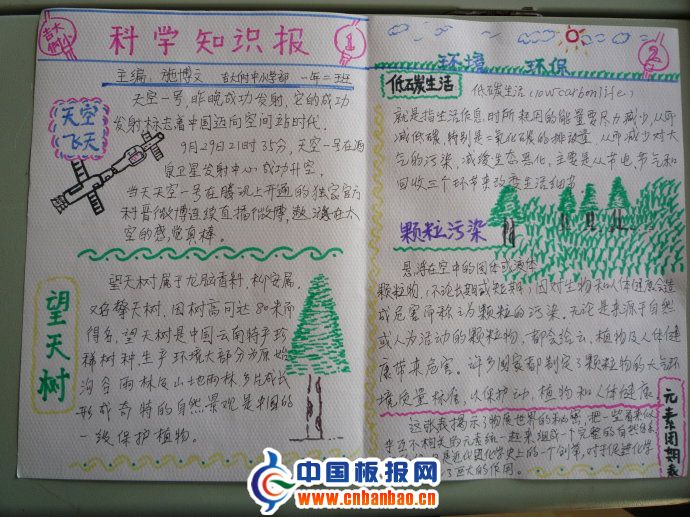 科学知识报
1
主编：施博文 吉大附中小学部 一年二班
天空
飞天
天空一号，昨晚成功发射，它的成功
发射标志着中国迈向空间站时代。
9月29日21时35分，天空一号在酒
泉卫星发射中心成功升空。
当天天空一号在腾讯上开通的独家官方
科普微博连续直播
空的感觉真棒。
望天树
望天树属于龙脑香科，柳安属。
又名擎天树，因树高可达80米而
得名，望天树是中国云南特产珍
稀树种，生产环境大部分为原始
沟谷雨林及山地雨林，多片成长
形成奇特的自然景观，是中国的
一级保护植物。
2
环境 环保
低碳生活
低碳生活（lowcarbonlife）
就是指生活作息，时所耗用的能量要尽力减少，从而
减低碳，特别是二氧化碳的排放量，从而减少对大
气的污染，减缓生态恶化，主要是从节电节气和
回收三个环节来改变生活细节
颗粒污染
悬浮在空中的固体或液体
颗粒物，不论长期或短期，因对生物和人体健康会造
成危害而称之为颗粒的污染，无论是来源于自然
或人为活动的颗粒物，都会给
植物及人体健
康带来危害。许多国家都制定了颗粒物的大气环
境质量标准，以保护动、植物和人体健康。
元素周期表
这张表揭示了物质世界的秘密，把一些看来似
乎互不相关的元素统一起来，组成一个完整的自然体系
近代化学史上的一个创举，对于促进化学
了巨大的作用。
中国板报网
www.cnbanbao.cn